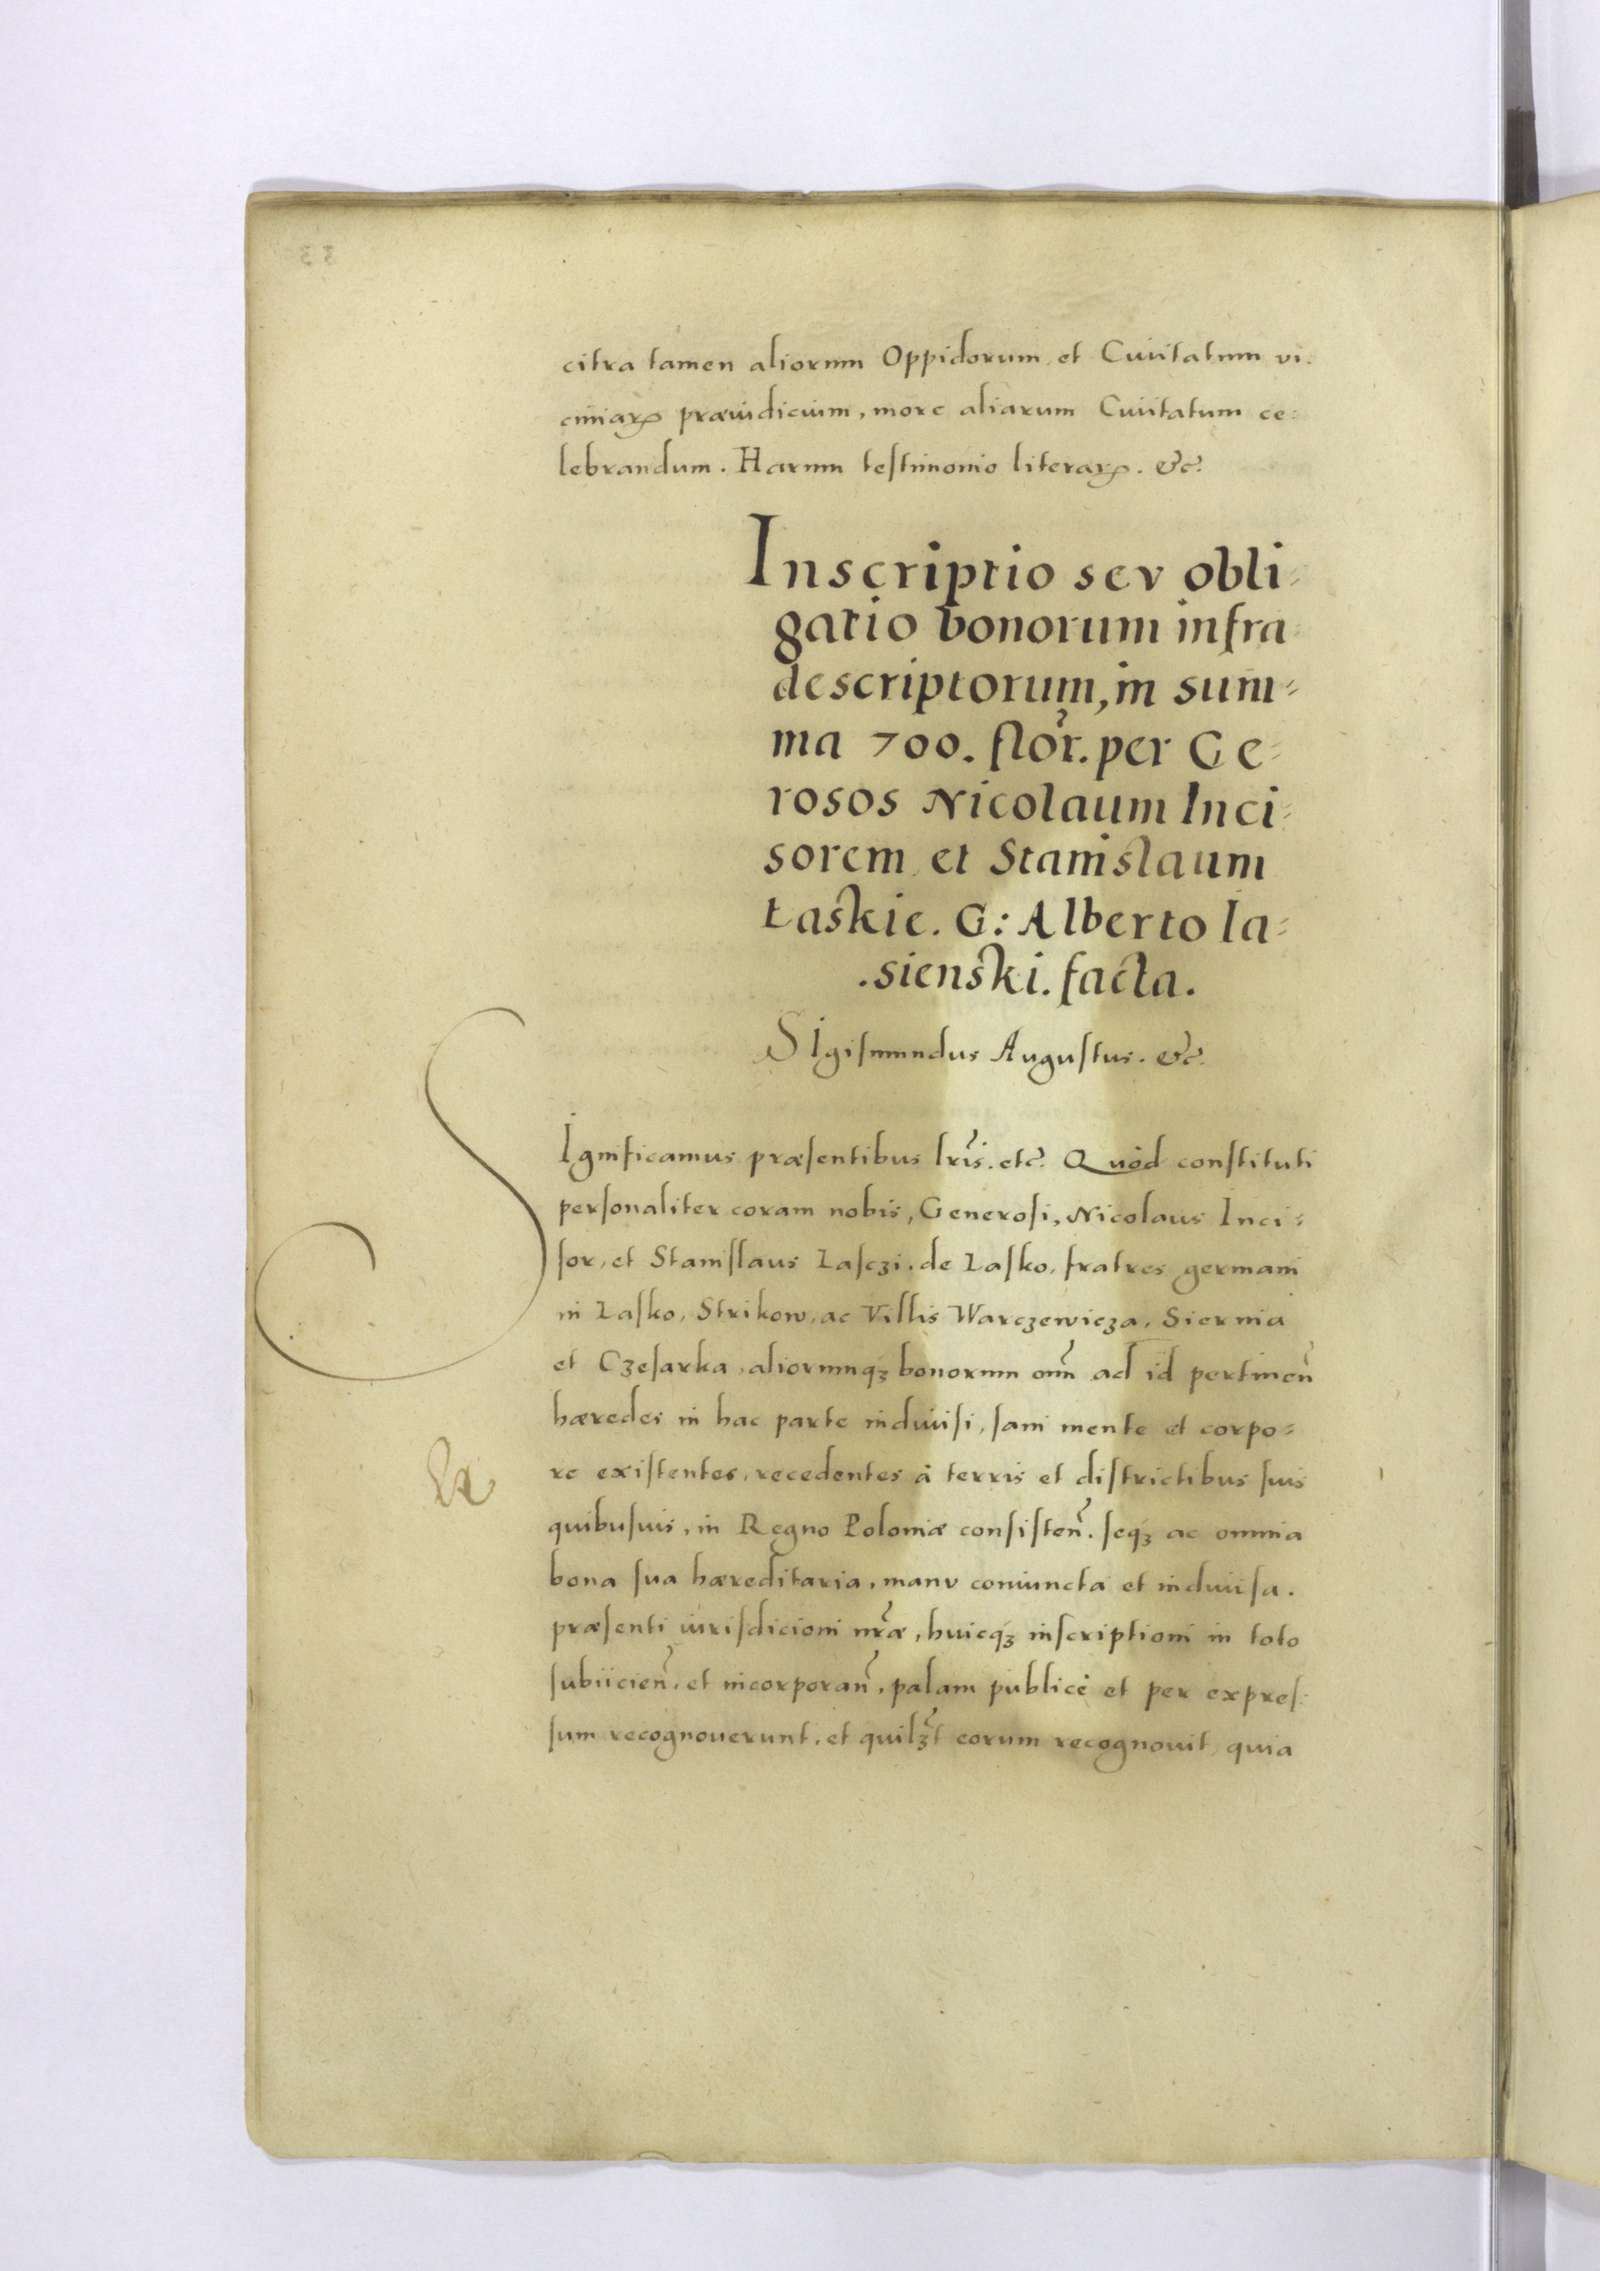 citra tamen aliorum Oppidorum et Ciuitatum vi.
ciniaꝝ præiudicium, more aliarum Ciuitatum ce:
lebrandum. Harum teſtimonio literaꝝ. &c̃.
Inscriptio sev obli=
gatio bonorum infra
descriptorum, in sum=
ma 700. flor̃. per Ge=
rosos Nicolaum Inci=
sorem et Stanislaum
Laskie. G: Alberto Ia=
.sienski. facta.
SIgiſmundus Auguſtus. &c̃.
SIgnificamus præſentibus lr̃is. etc̃. Quòd conſtituti
perſonaliter coram nobis, Generoſi, Nicolaus Inci=
ſor, et Staniſlaus Laſczi, de Laſko, fratres germani
in Laſko, Strikow, ac Villis Warczewicza, Siernia
et Czeſarka, aliorumqꝫ bonorum om̃n ad id pertinen̄
hæredes in hac parte indiuiſi, ſani mente et corpo=
re exiſtentes, recedentes à terris et diſtrictibus ſuis
quibuſuis, in Regno Poloniæ conſiſten̄. ſeqꝫ ac omnia
bona ſua hæreditaria, manv coniuncta et indiuiſa.
præſenti iuriſdicioni nr̃æ, huicqꝫ inſcriptioni in toto
ſubiicien̄, et incorporan̄, palam publicè et per expreſ:
ſum recognouerunt, et quilꝫt eorum recognouit, quia